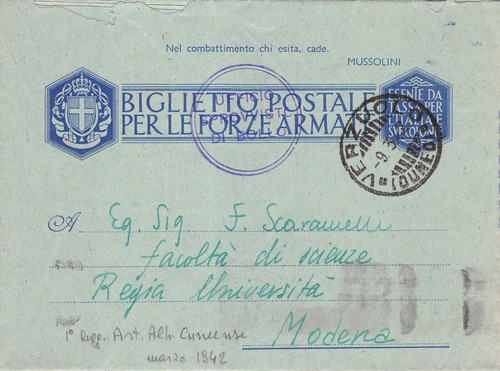 Nel combattimento chi esita, cade.
MUSSOLINI
BIGLIETTO POSTALE
PER LE FORZE ARMATE
ESENTE DA
TASSA PER
L'ITALIA E
SVE COLONIE
UFFICIO
DI
VERZUOLO
(CUNEO)
A Eg. Sig. F. Scaramelli
facoltà di scienze
Regia Università
Modena
1° Regg. Art. Alp. Cuneense
marzo 1942